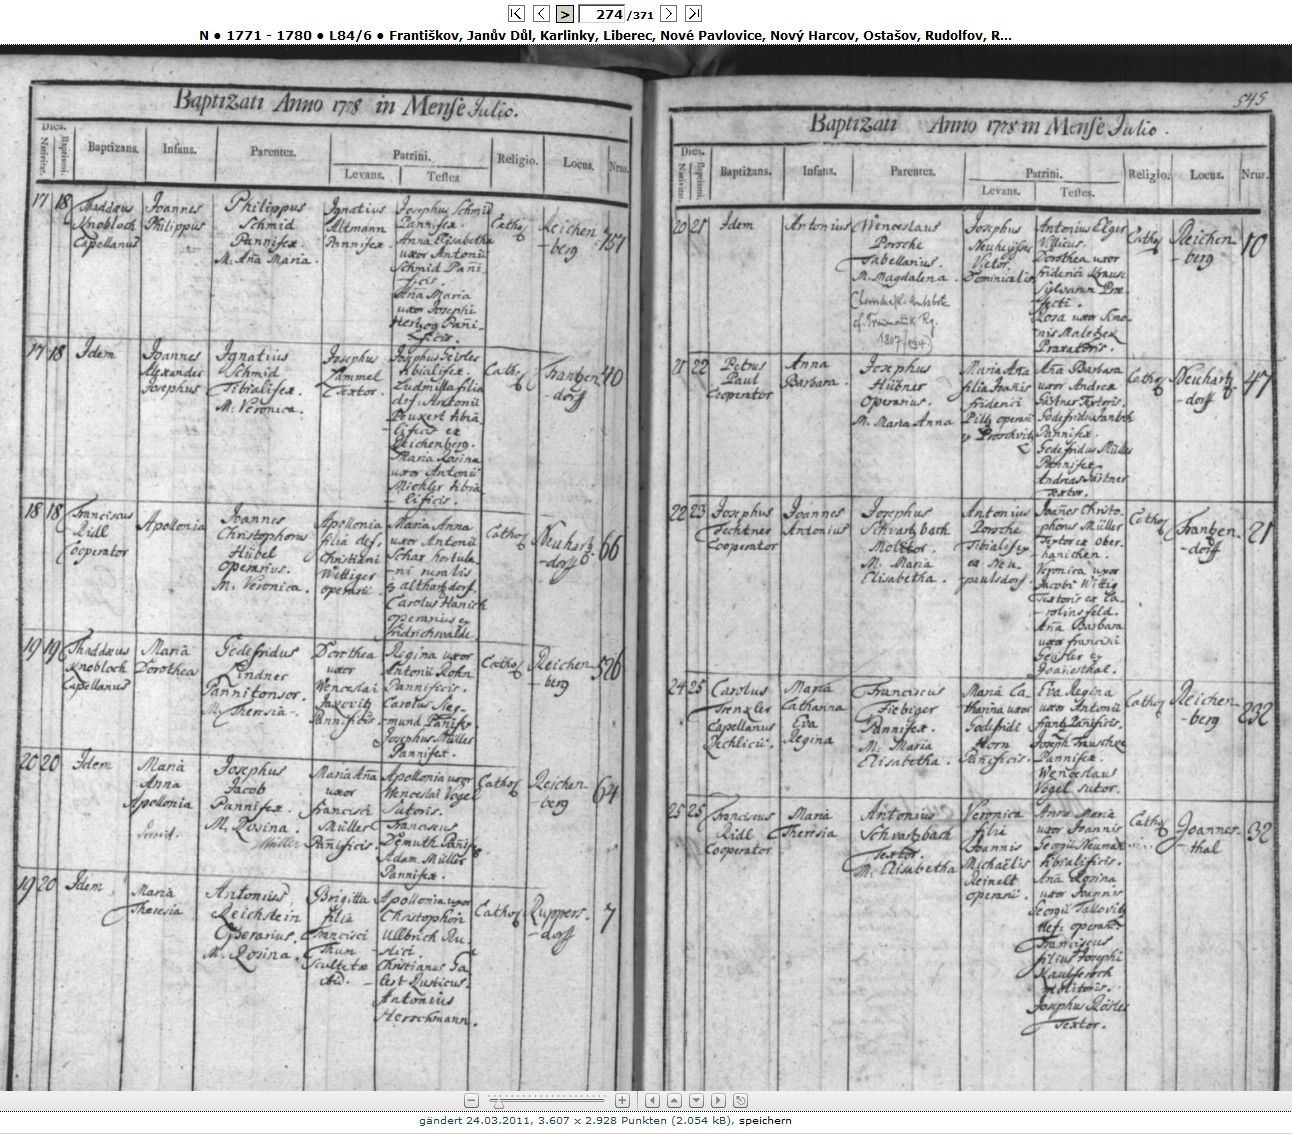 274 /371
N ● 1771 - 1780 ● L84/6 ● Františkov, Janův Důl, Karlinky, Liberec, Nové Pavlovice, Nový Harcov, Ostašov, Rudolfov, R...
Baptizati Anno 1778 in Mense Julio.
Dies.
Nativit.
Baptismi.
Baptizans.
Infans.
Parentes.
Patrini.
Levans.
Testes
Religio.
Locus.
Nrus.
17 18
Thaddæus
Knobloch
Capellanus
Joannes
Philippus
Philippus
Schmid
Pannifex.
M. Aña Maria.
Ignatius
Altmann
Pannifex.
Josephus Schmid
Pannifex.
Anna Elisabetha
uxor Antonii
Schmid Pañi-
ficis.
Aña Maria
uxor Josephi
Hertzog Pañi-
ficis.
Cathol
Reichen
-berg
151
17 18
Idem
Joannes
Alexander
Josephus
Ignatius
Schmid
Tibialifex.
M. Veronica.
Josephus
Textor.
tibialifex.
Ludmilla filia
def. Antonii
Peukert tibia-
lificis ex
Reichenberg.
Maria Rosina
uxor Antonii
Michler tibia-
lificis.
Cathol
Frantzen
-dorf
40
18 18
Franciscus
Ridl
Cooperator
Apollonia
Joannes
Christophorus
Hübel
Operarius.
M. Veronica.
Apollonia
filia def.
Christiani
Wittiger
operarii.
Maria Anna
uxor Antonii
Schax hortula-
ni ruralis
ex althartzdorf.
Carolus Hanich
operarius ex
fridrichswalde.
Cathol
Neuhartz-
-dorff
66
19 19
Thaddæus
Knobloch
Capellanus
Maria
Dorothea
Godefridus
Lindner
Pannitonsor.
M. Theresia.
Dorothea
uxor
Wenceslai
Pannificis
Regina uxor
Antonii Rohn
Pannificis.
Carolus Sieg-
mund Pañifex
Josephus Müller
Pannifex.
Cathol
Reichen-
berg
526
20 20
Idem
Maria
Anna
Apollonia
Josephus
Jacob
Pannifex.
M. Rosina.
Müller
Maria Aña
uxor
francisci
Müller
Pañificis.
Apollonia uxor
Wenceslai Vogel
Sutoris.
Franciscus
Demuth Pañifex
Adam Müller
Pannifex.
Cathol
Reichen
berg
64
19 20
Idem
Maria
Theresia
Antonius
Reichstein
Operarius.
M. Rosina.
Brigitta
filia
Francisci
Thun
Sculteti
Apollonia uxor
Christophori
Ullbrich Ru-
stici.
Christianus Ga-
lest Rusticus.
Antonius
Herrchmann.
Cathol
Ruppers-
-dorff
7
545
Baptizati Anno 1778 in Mense Julio.
Dies.
Nativit.
Baptismi.
Baptizans.
Infans.
Parentes.
Patrini.
Levans.
Testes.
Religio.
Locus.
Nrus.
20 21
Idem
Antonius
Wenceslaus
Porsche
Tabellarius.
M. Magdalena.
1807
Josephus
Victor
Dominicalis
Antonius Elger
Villicus.
Dorothea uxor
friderici Krause
Sylvarum Præ-
fecti.
Rosa uxor Simo-
nis
Praxatoris.
Cathol
Reichen
-berg
10
21 22
Petrus
Paul
Cooperator
Anna
Barbara.
Josephus
Hübner
Operarius.
M. Maria Anna
Maria Aña
filia Joañis
friderici
Piltz operarii
Aña Barbara
uxor Andreæ
Gärtner Textoris.
Pannifex.
Godefridus Müller
Pannifex
Andreas Gärtner
Textor.
Cathol
Neuhartz-
-dorff
47
22 23
Josephus
Fechtner
Cooperator
Joannes
Antonius
Josephus
Schvartzbach
Molitor.
M. Maria
Elisabetha.
Antonius
Porsche
Tibialifex
ex Neu-
paulsdorf.
Joañes Christo-
phorus Müller
Textor ex ober-
hanichen.
Veronica uxor
Jacobi Wittig
Textoris ex Ca-
rolinsfeld.
Aña Barbara
uxor francisci
Geisler ex
Joanesthal.
Cathol
Frantzen-
-dorff
21
24 25
Carolus
Trenkler
Capellanus
Maria
Catharina
Eva
Regina
Franciscus
Fiebiger
Pannifex.
M. Maria
Elisabetha.
Maria Ca-
tharina uxor
Godefridi
Horn
Pañificis.
Eva Regina
uxor Antonii
frantz Pañificis.
Pannifex.
Wenceslaus
Vogel sutor.
Cathol
Reichen
-berg
232
25 25
Franciscus
Ridl
Cooperator
Maria
Theresia
Antonius
Schvartzbach
Textor.
M. Elisabetha
Veronica
filia
Joannis
Michaëlis
Reinelt
operarii.
Anna Maria
uxor Joannis
Georgii Neuman
tibialificis.
Aña Rosina
uxor Joannis
Georgii
Franciscus
filius Josephi
molitoris.
Josephus Rösler
Textor.
Cathol
Joannes-
thal
32
gändert 24.03.2011, 3.607 x 2.928 Punkten (2.054 kB), speichern